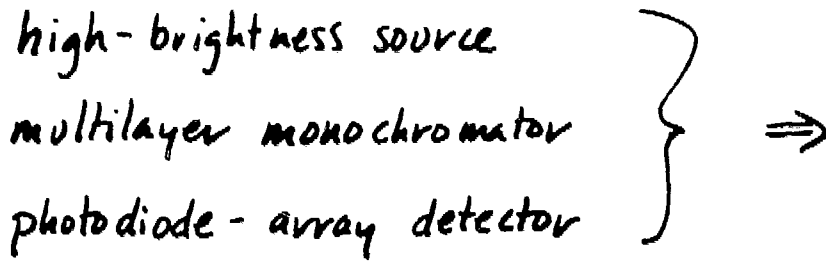 high-brightness source
multilayer monochromator
photodiode-array detector
⇒